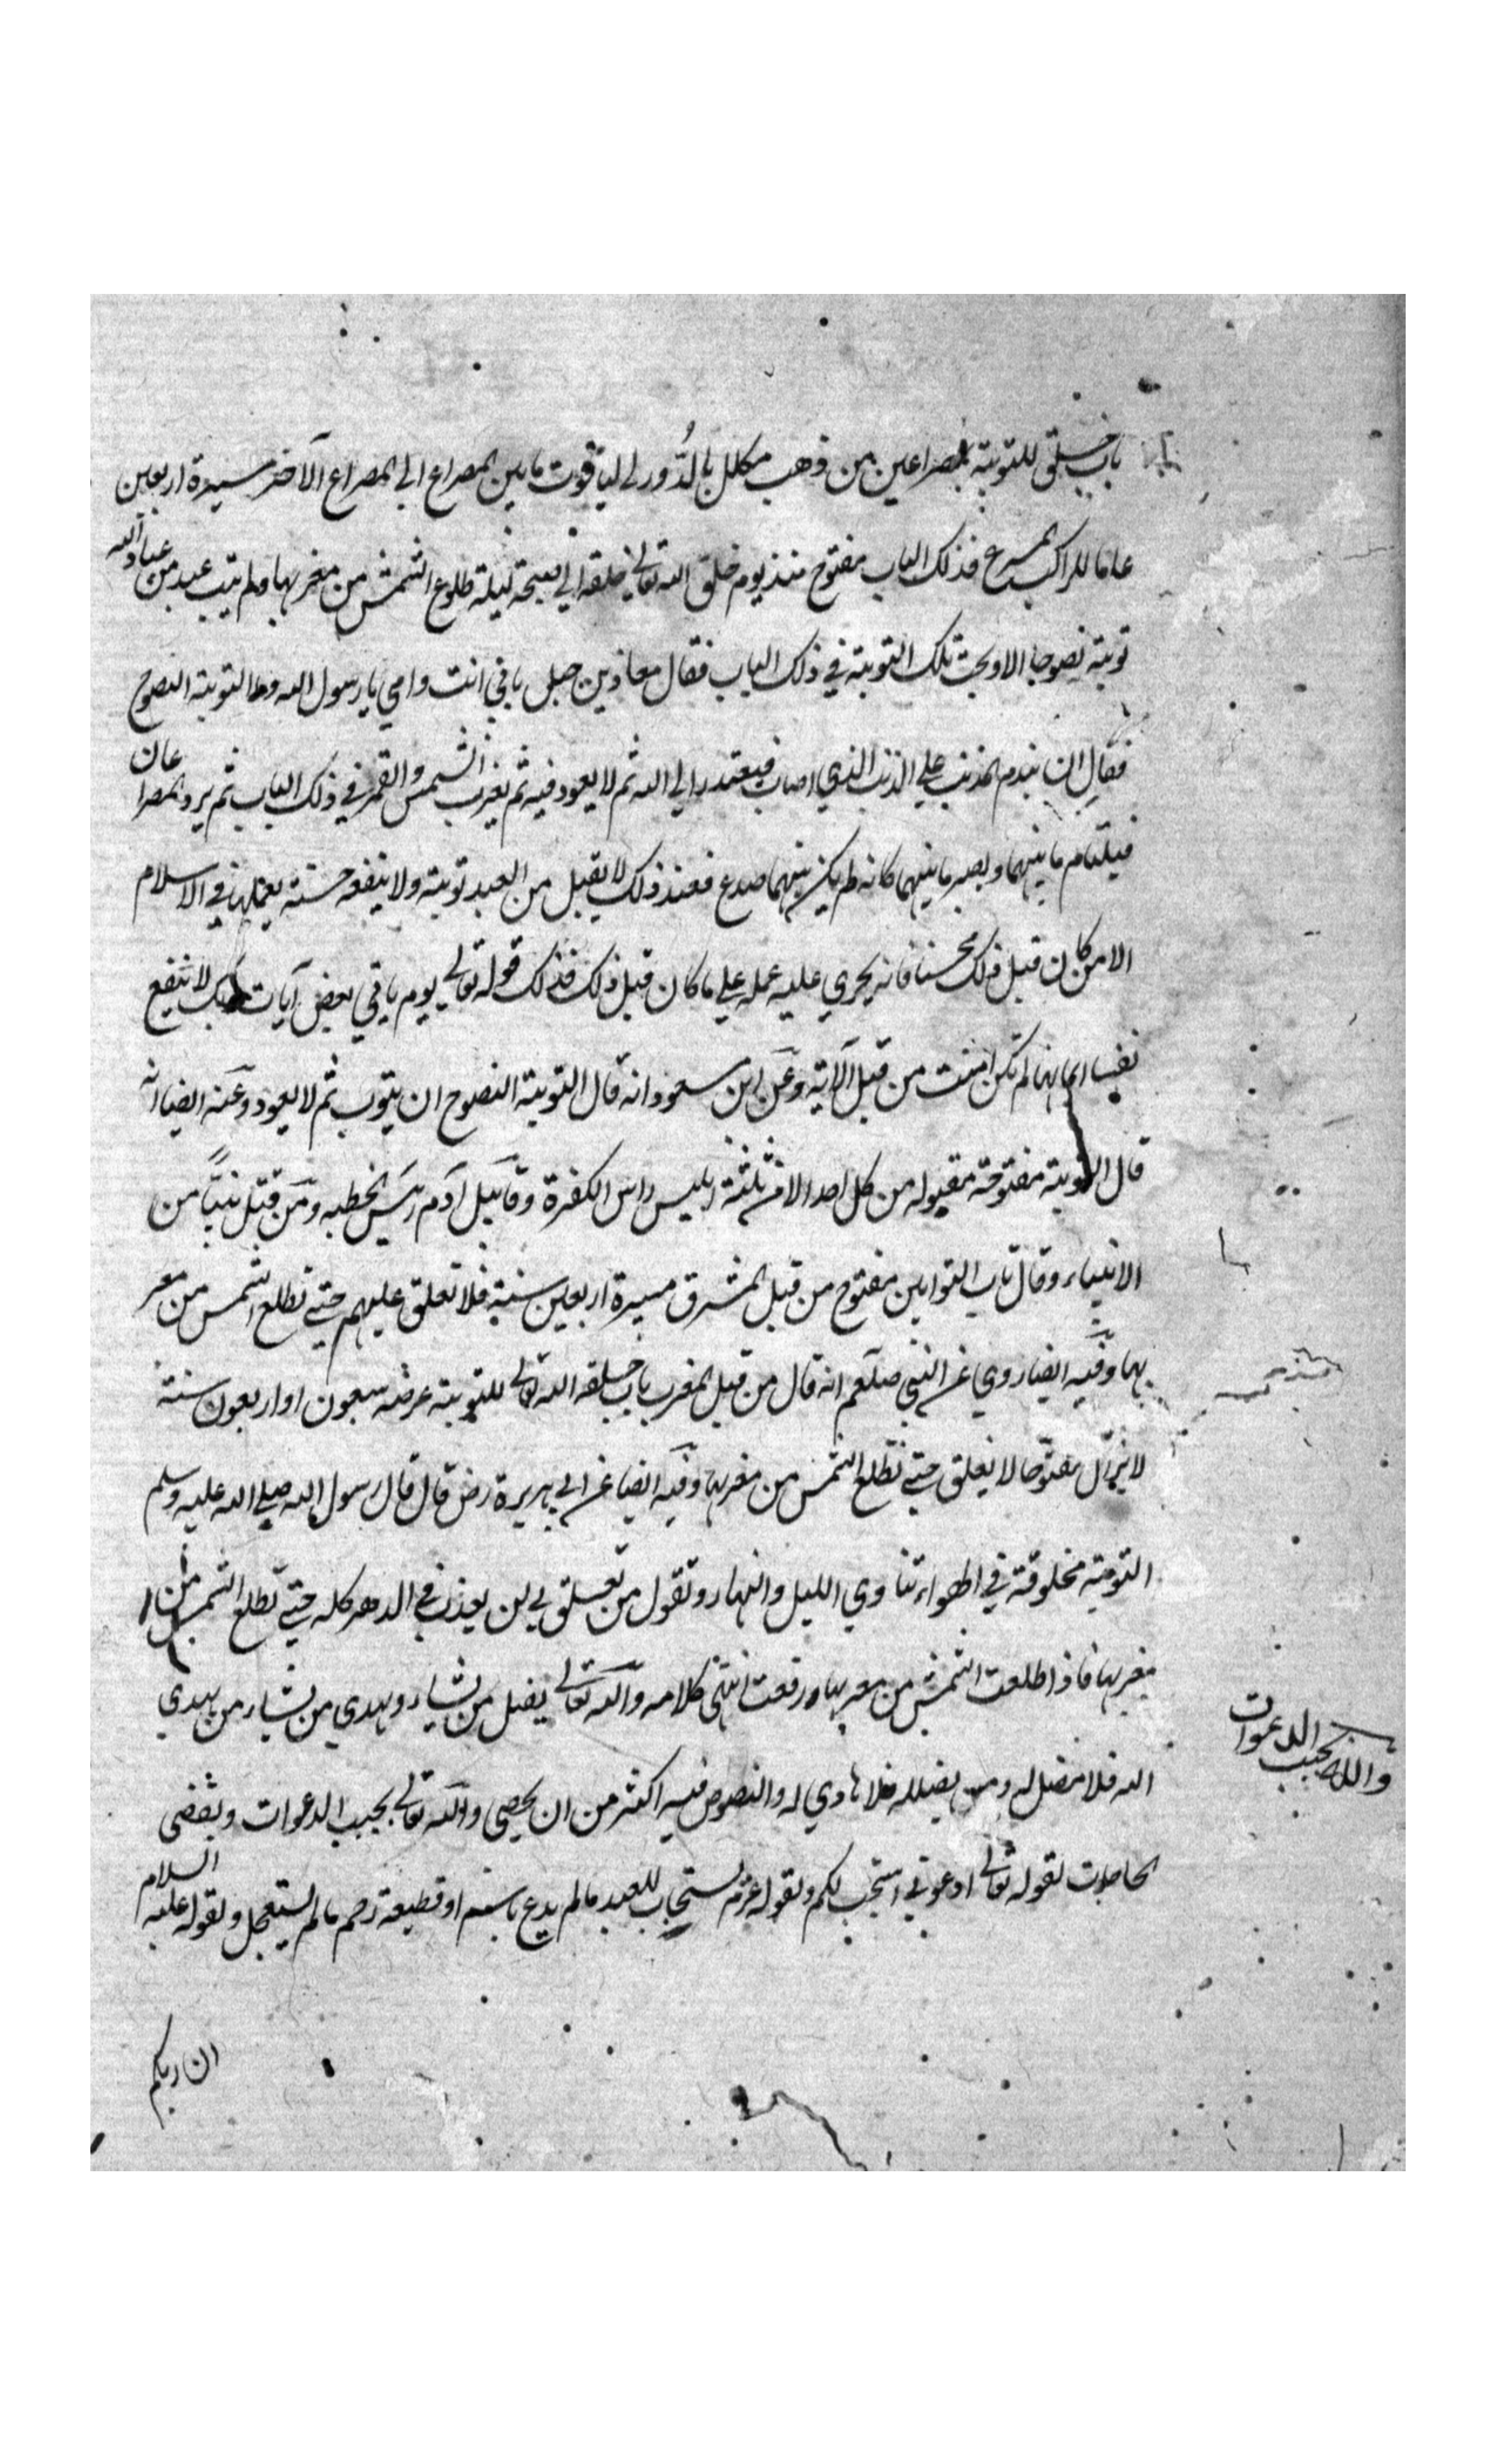 باب خلق للتوبة بمصراعين من ذهب مكلل بالدُّور لے لياقوت ما بين المصراع الى المصراع الآخر مسيرة اربعين
عاما للراكب المسرع فذلك الباب مفتوح منذ يوم خلق الله تعالى خلقه الى صبيحة ليلة طلوع الشمس من مغربها ولم يتب عبد من عباد الله
توبة نصوحا الا ولجت تلك التوبة في ذلك الباب فقال معاذ بن جبل بابي انت وامي يا رسول الله وما التوبة النصوح
فقال ان يندم المذنب علي الذنب الذي اصاب فيعتذر الي الله ثم لا يعود فيه ثم يغرب الشمس والقمر في ذلك الباب ثم يرد المصراعان
فيلتام ما بينهما ويصير ما بينهما كانه لم يكن بينهما صدع فعند ذلك لا يقبل من العبد توبة ولا ينفعه حسنة يعملها في الاسلام
الا من كان قبل ذلك محسنا فانه يجري عليه عمله علي ما كان قبل ذلك فذلك قوله تعالى يوم ياتي بعض آيات ربك لا ينفع
نفسا ايمانها لم تكن امنت من قبل الآية وعن ابن مسعود انه قال التوبة النصوح ان يتوب ثم لا يعود وعنه ايضا انه
قال التوبة مفتوحة مقبوله من كل احد الا من ثلثة ابليس راس الكفرة وقابيل آدم رئيس الخطية ومن قتل نبيًّا من
الانبياء وقال باب التوابين مفتوح من قبل المشرق مسيرة اربعين سنة فلا تغلق عليهم حتي تطلع الشمس من مغر
بها وفيه ايضا روي عن النبي صلعم انه قال من قبل المغرب باب خلقه الله تعالى للتوبة عرضه سبعون او اربعون سنة
لا يزال مفتوحا لا يغلق حتي تطلع الشمس من مغربها وفيه ايضا عن ابي هريرة رض قال قال رسول الله صلي الله عليه وسلم
التوبة مخلوقة في الهواء تنادي الليل والنهار وتقول من تعلق بي لن يعذب في الدهر كله حتي تطلع الشمس من
مغربها فاذا طلعت الشمس من مغربها ورفعت انتهى كلامه والله تعالى يضل من يشاء ويهدي من يشاء من يهدي
الله فلا مضل له ومن يضلله فلا هادي له والنصوص فيه اكثر من ان يحصى والله تعالى يجيب الدعوات ويقضى
الحاجات لقوله تعالى ادعوني استجب لكم ولقوله عزم يستجاب للعبد ما لم يدع باسم او قطيعة رحم ما لم يستعجل ولقوله عليه السلام
والله يجيب الدعوات
ان ربكم